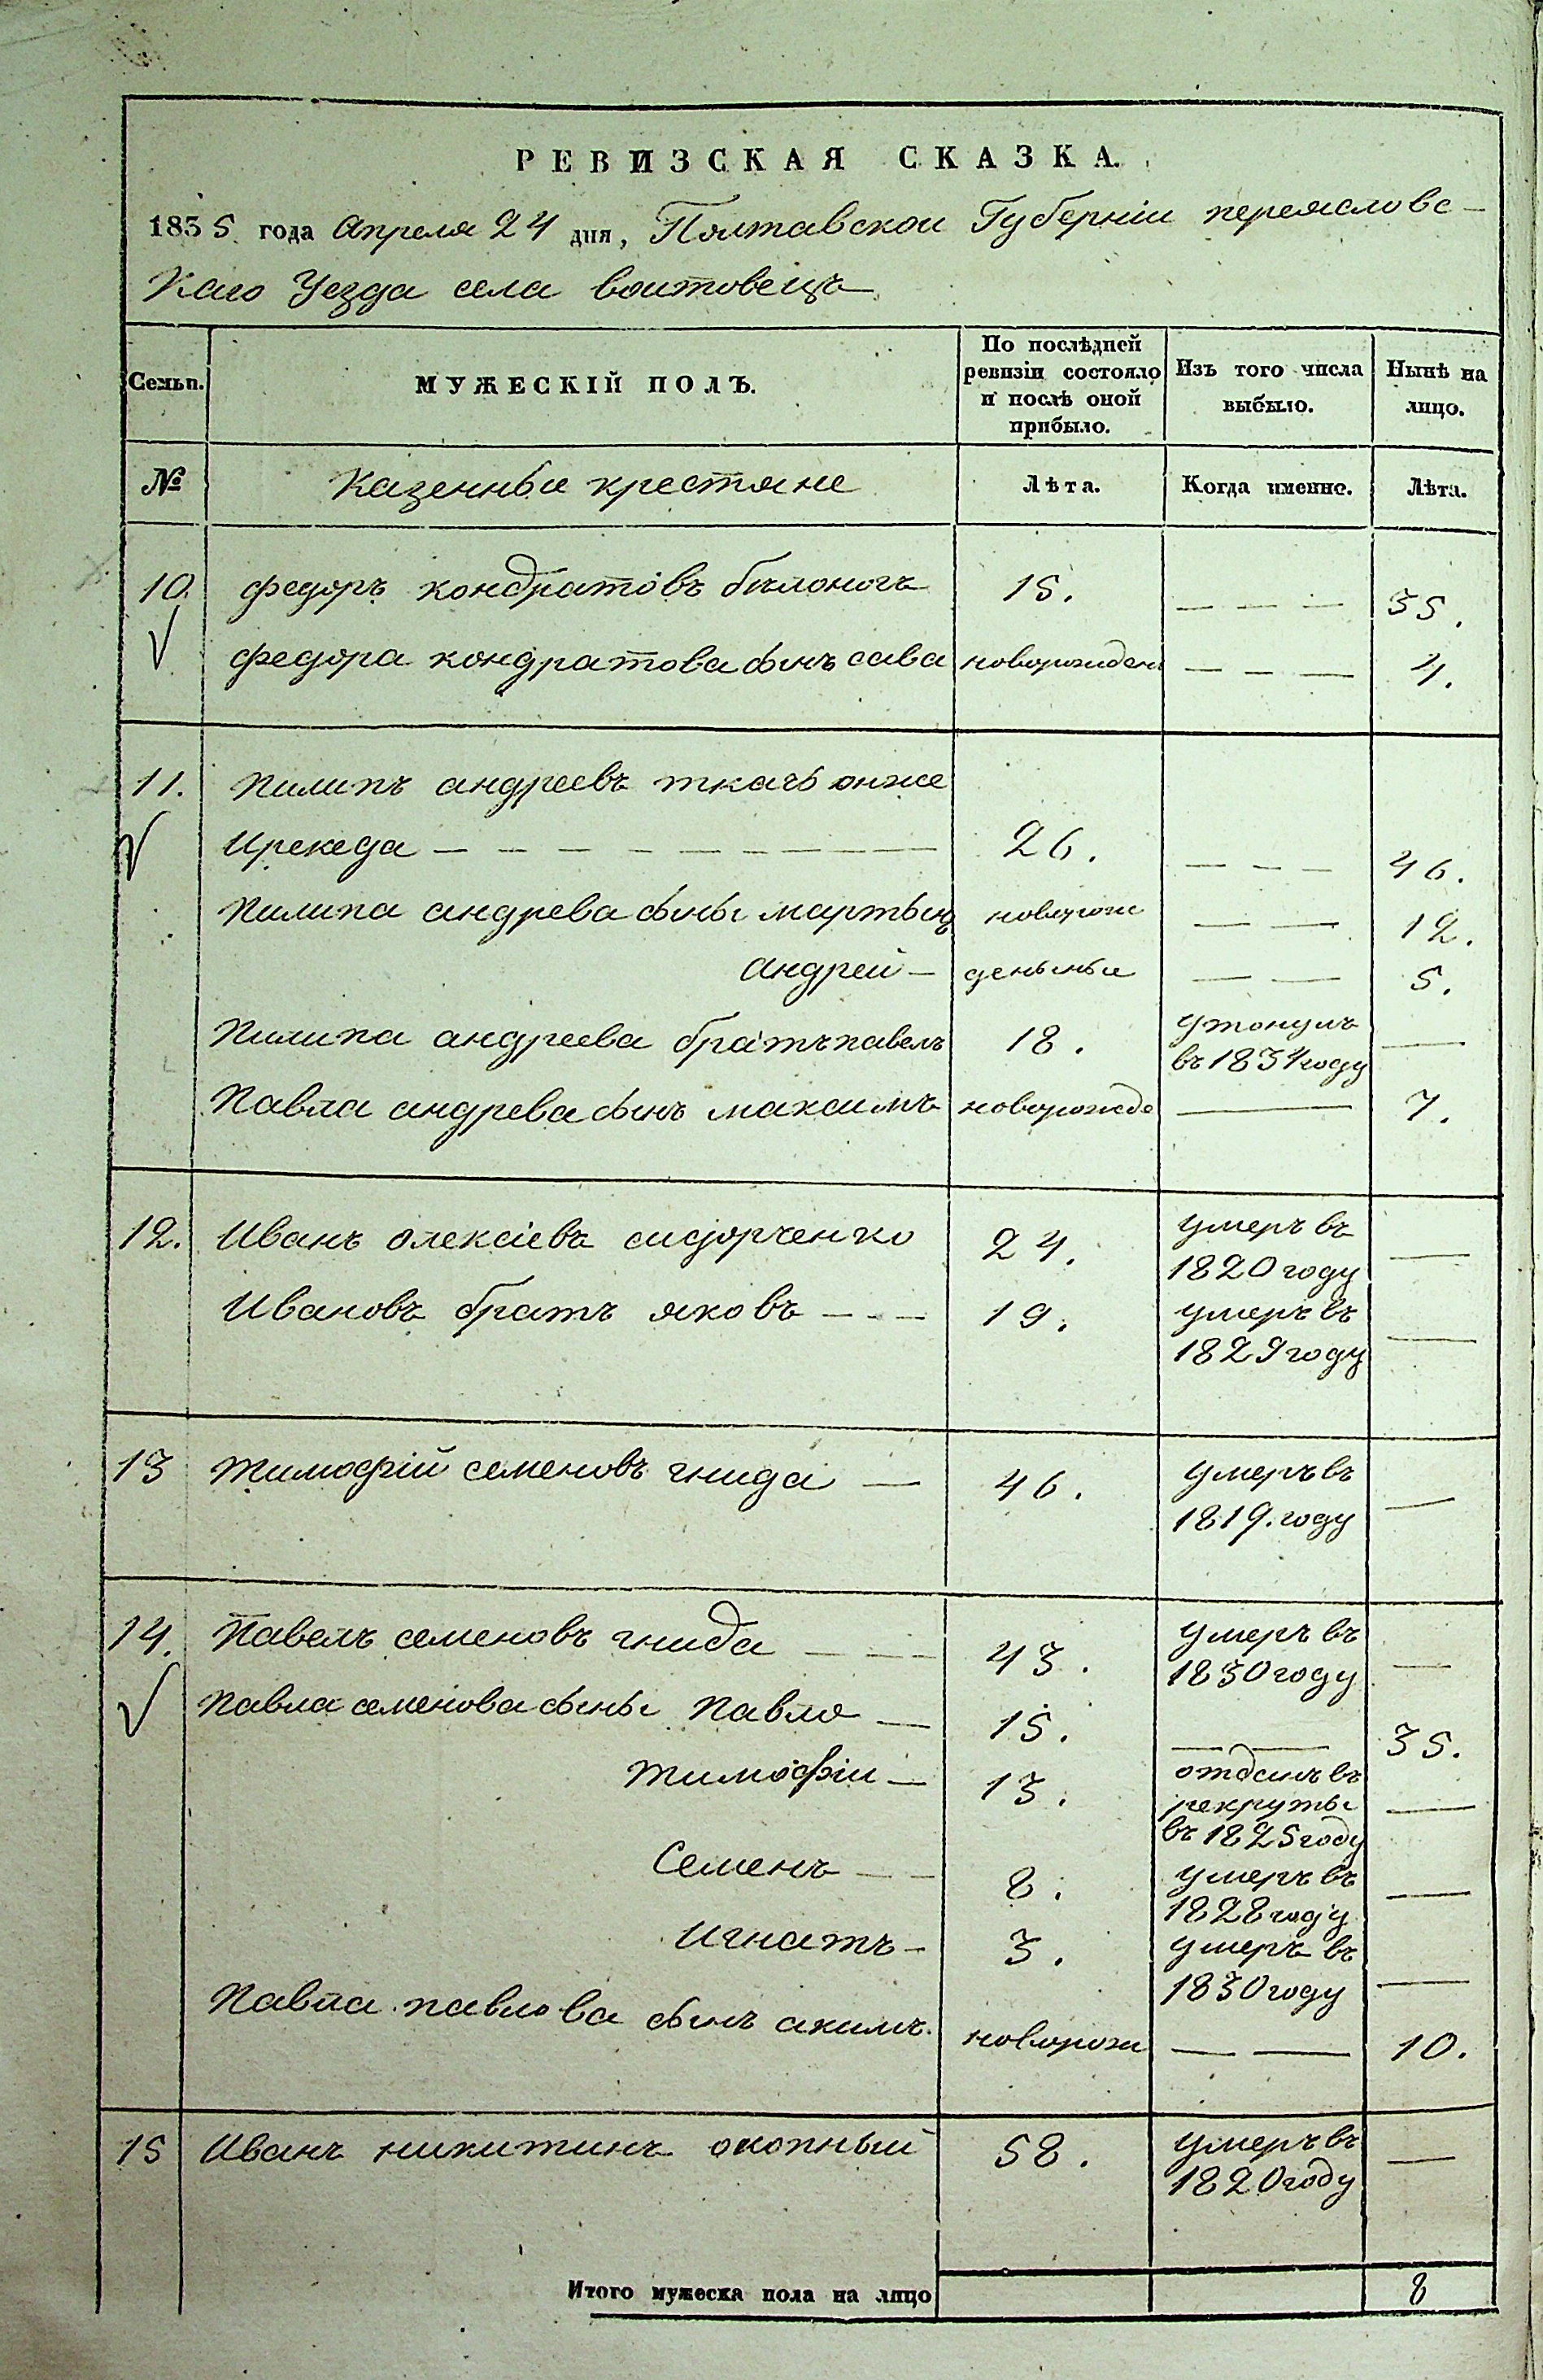 РЕВИЗСКАЯ СКАЗКА.
1835 года Апреля 24 дня, Полтавской Губерніи переясловс-
Каго Уезда села воитовецъ
Семьи. МУЖЕСКІЙ ПОЛЪ. По послѣдней ревизіи состояло и послѣ оной прибыло. Изъ того числа выбыло. Нынѣ на лицо.
№ Казенные крестяне Лѣта. Когда именно. Лѣта.
10. федоръ кондратовъ билоногъ 15. — — — 35.
федора кондратова сынъ сава новорожден — — — 4.
11. Пилипъ андреевъ ткачь онже
— — — — — — — — — 26. — — — 46.
Пилипа андрева сыны мартынъ новорож — — 12.
андрей — деныные — — 5.
Пилипа андреева братъ павелъ 18. утонулъ —
въ 1834 году
Павла андрева сынъ максимъ новорожде — 7.
12. Иванъ олексіевъ сидорченко 24. умеръ въ —
1820 году
Ивановъ братъ яковъ — - — 19. умеръ въ —
1829 году
13 тимофій семеновъ гнида — 46. умеръ въ —
1819. году
14. Павелъ семеновъ гнида — — — 43. умеръ въ —
1830 году
Павла семенова сыны Павло — 15. — — 35.
тимофіи — 13. отданъ въ —
рекруты
въ 1825 году
Семенъ — — 8. умеръ въ —
1828 году
Игнатъ — 3. умеръ въ —
1830 году
Павла павлова сынъ акимъ. новорож — — 10.
15 Иванъ никитинъ окопный 58. умеръ въ —
1820 году
Итого мужеска пола на лицо 8